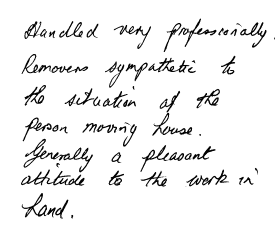 Handled very professionally.
Removers sympathetic to
the situation of the
person moving house.
Generally a pleasant
attitude to the work in
hand.